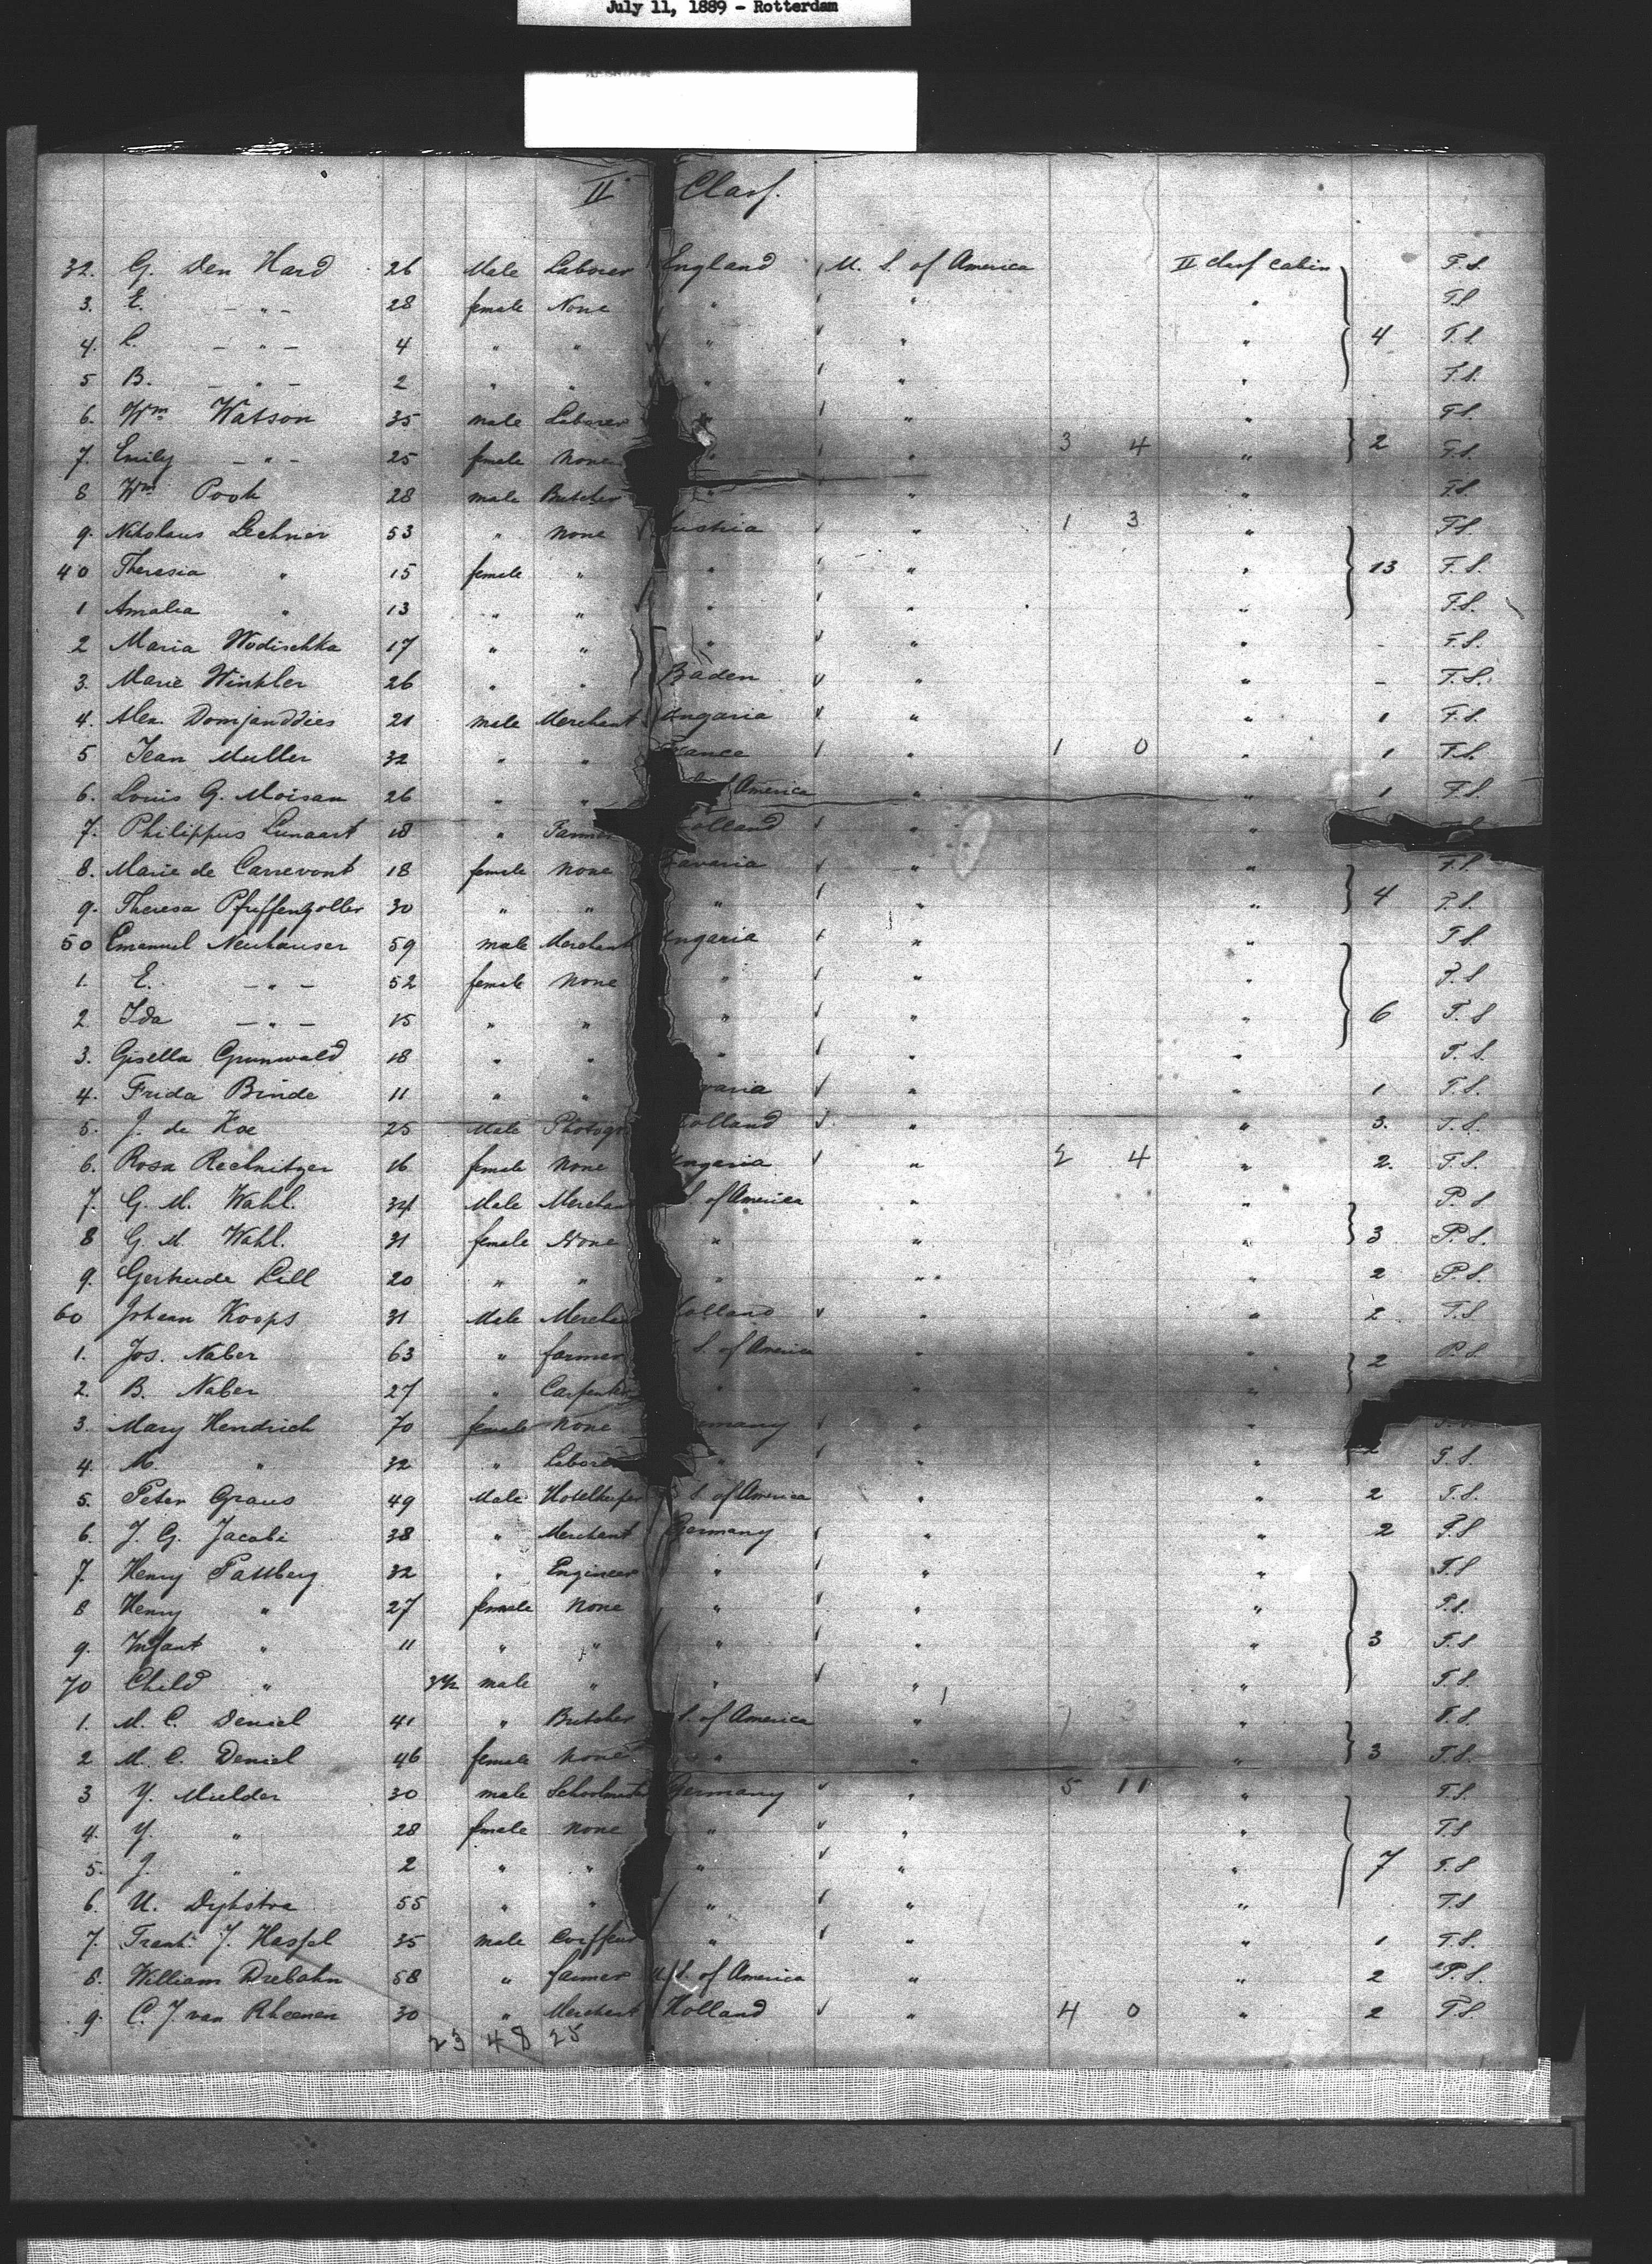 July 11, 1889 - Rotterdam
II Class.
32. G. Den Hard 26 Male Laborer England U. S. of America II class cabin T.S.
3. E. - " - 28 female None " " " T.S
4. L. - " - 4 " " " " " 4 T.S.
5 B. - " - 2 " " " " " T.S.
6. Wm Watson 35 male Laborer " " T.S.
7. Emily - " - 25 female None " " 3 4 " 2 T.S.
8 Wm Pook 28 male Butcher " " " T.S.
9. Nikolaus Lechner 53 " None Austria " 1 3 " T.S.
40 Theresia " 15 female " " " " 13 T.S.
1 Amalia " 13 " " " " " T.S.
2 Maria Wodischka 17 " " " " " - T.S.
3. Marie Winkler 26 " " Baden " " - T.S.
4. Alex. Domjanddies 21 male Merchant Ungaria " " 1 T.S.
5 Jean Muller 32 " " France " 1 0 " 1 T.S.
6. Louis G. Moisan 26 " " of America " " 1 T.S.
7. Philippus Lunaart 18 " Farmer Holland " "
8. Marie de Carrevont 18 female None Bavaria " " T.S.
9. Theresa Pfeffenzoller 30 " " " " " 4 T.S.
50 Emanuel Neuhauser 59 male Merchant Ungaria " " T.S.
1. E. - " - 52 female None " " " T.S
2 Ida - " - 15 " " " " " 6 T.S
3. Gisella Grunwald 18 " " " " " T.S.
4. Frida Binde 11 " " varia " " 1 T.S.
5. J. de Koe 25 Male Photogr Holland " " 3. T.S.
6. Rosa Rechnitzer 16 female None Ungaria " 2 4 " 2. T.S.
7. G. M. Wahl. 34 Male Merchan S. of America " " P.S
8 G. M. Wahl. 31 female None " " " 3 P.S.
9. Gertrude Lill 20 " " " " " 2 P.S.
60 Johann Koops 31 Male Merchan Holland " " 2 T.S
1. Jos. Naber 63 " farmer S. of America " " 2 P.S
2. B. Naber 27 " Carpenter " " "
3. Mary Hendrich 70 female None Germany " "
4. M. " 32 " Laborer " " " T.S.
5. Peter Graus 49 Male Hotelkeeper S. of America " " 2 T.S.
6. J. G. Jacobi 38 " Merchant Germany " " 2 T.S
7. Henry Pattberg 32 " Engineer " " " T.S
8 Henry " 27 female None " " " T.S.
9. Infant " 11 " " " " " 3 T.S
70 Child " 3½ male " " " " T.S.
1. M. C. Deniel 41 " Butcher S. of America " " T.S.
2 M. C. Deniel 46 female None " " " 3 T.S.
3 Y. Mulder 30 male Schoolmaster Germany " 5 11 " T.S.
4. Y. " 28 female None " " " T.S
5. J. " 2 " " " " " 7 T.S
6. U. Dykstra 55 " " " " " T.S
7. Frank J. Haspel 35 male Coiffeur " " " 1 T.S.
8. William Drebahn 58 " farmer U.S. of America " " 2 P.S.
9. C. J. van Rheenen 30 " Merchant Holland " 4 0 " 2 T.S.
23 48 25